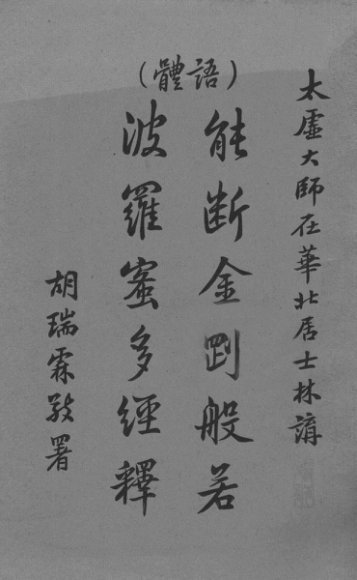 太虛大師在華北居士林講
能断金剛般若
波羅蜜多經釋
（語體）
胡瑞霖敬署